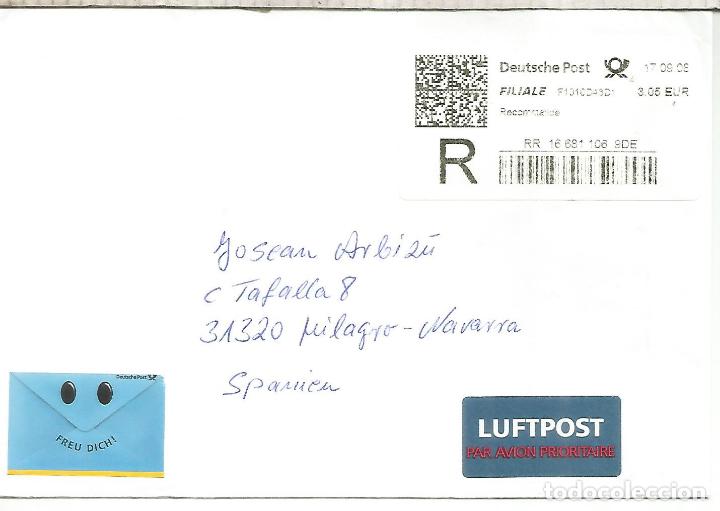 Deutsche Post 17.09.08
FILIALE 3.05 EUR
Recommandé
RR 16 681 106 9DE
R
Josean Arbizú
c Tafalla 8
31320 Milagro-Navarra
Spanien
Deutsche Post
FREU DICH!
LUFTPOST
PAR AVION PRIORITAIRE
todocoleccion.net